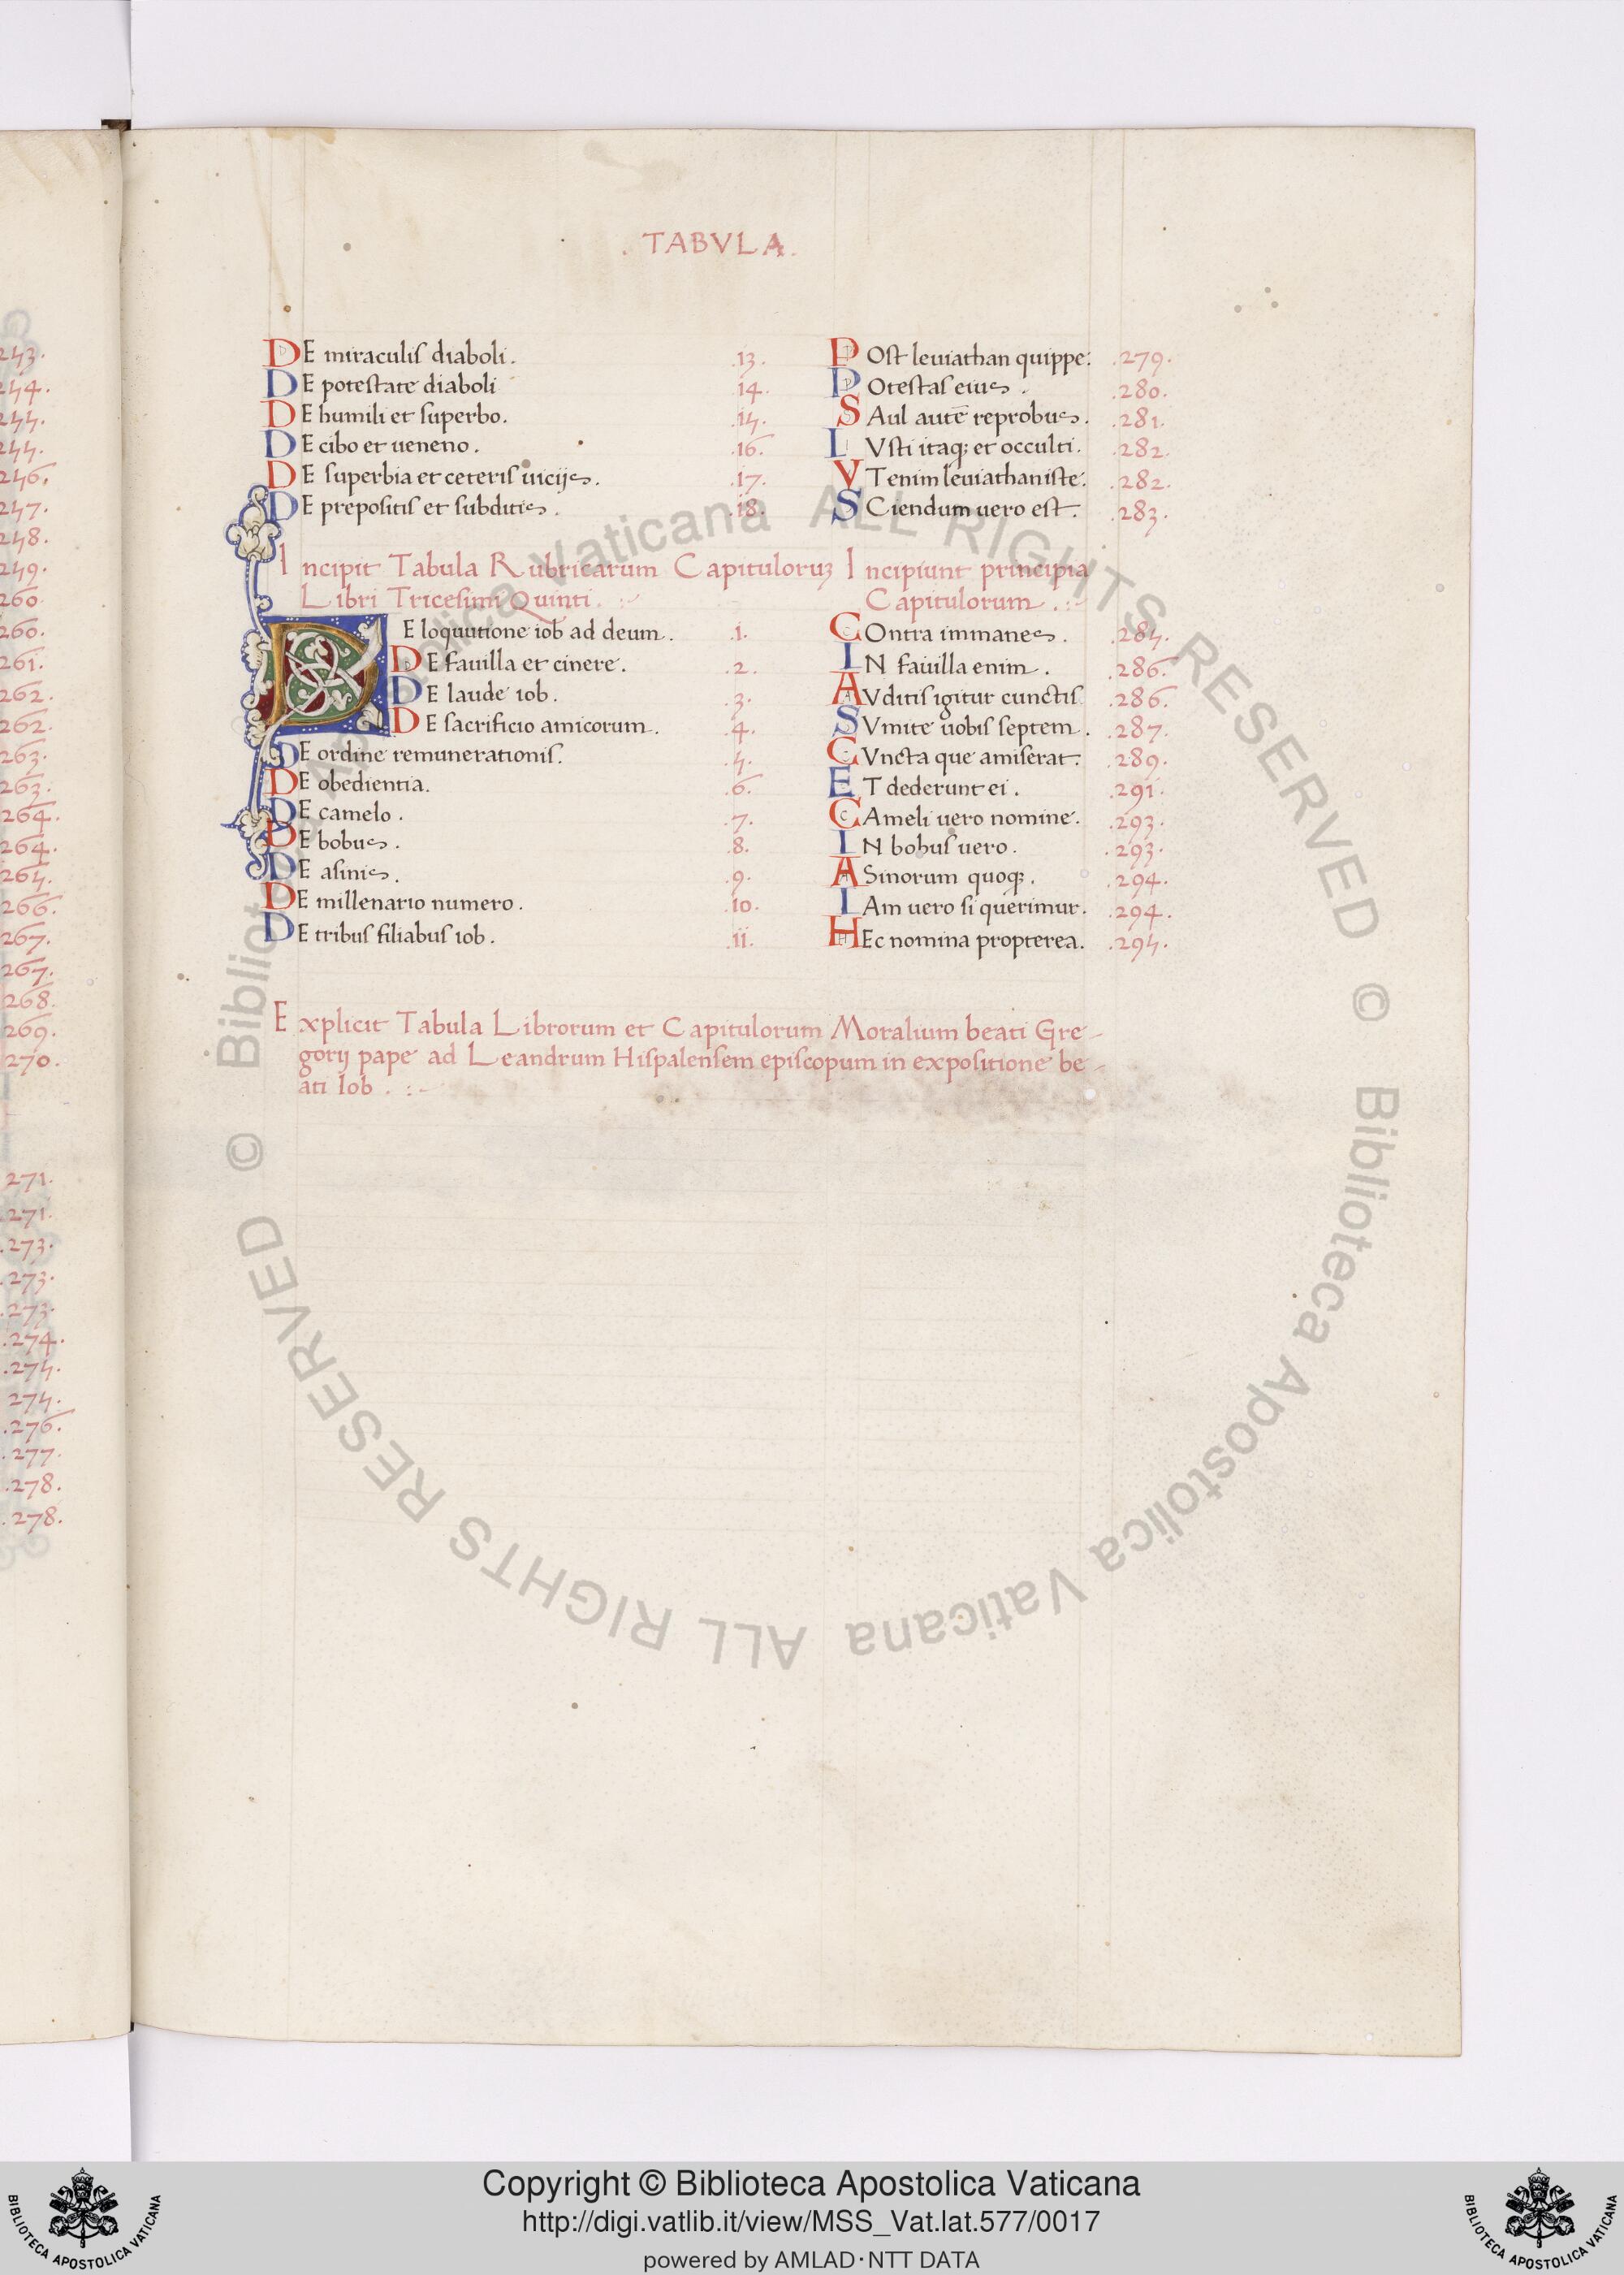 243.
244.
245.
245.
246.
247.
248.
249.
260.
260.
261.
262.
262.
263.
263.
264.
264.
265.
266.
267.
267.
268.
269.
270.
271.
271.
.273.
.273.
.273.
.274.
.275.
275.
.276.
.277.
.278.
.278.
. TABVLA .
DE miraculis diaboli. .13. POst leuiathan quippe: .279.
DE potestate diaboli 14. POtestas eius . .280.
DE humili et superbo. .15. SAul autē reprobus. .281.
DE cibo et ueneno. .16. IVsti itaq; et occulti. .282.
DE superbia et ceteris uicijs. .17. VTenim leuiathan iste. .282.
DE prepositis et subditis. .18. SCiendum uero est. .283.
Incipit Tabula Rubricarum Capituloruȝ Incipiunt principia
Libri Tricesimi Quinti. :~ Capitulorum. :~
DE loquutione iob ad deum. .1. COntra immanes. .285.
DE fauilla et cinere. .2. IN fauilla enim. .286.
DE laude iob. .3. AVditis igitur cunctis. .286.
DE sacrificio amicorum. .4. SVmite uobis septem. .287.
DE ordine remunerationis. .5. CVncta que amiserat. .289.
DE obedientia. .6. ET dederunt ei. .291.
DE camelo. .7. CAmeli uero nomine. .293.
DE bobus. .8. IN bobus uero. .293.
DE asinis. .9. ASinorum quoq;. .294.
DE millenario numero. .10. IAm uero si querimur. .294.
DE tribus filiabus iob. .11. HEc nomina propterea. .295.
Explicit Tabula Librorum et Capitulorum Moralium beati Gre-
gorij pape ad Leandrum Hispalensem episcopum in expositione be-
ati Iob . :~
© Biblioteca Apostolica Vaticana ALL RIGHTS RESERVED
© Biblioteca Apostolica Vaticana ALL RIGHTS RESERVED
Copyright © Biblioteca Apostolica Vaticana
http://digi.vatlib.it/view/MSS_Vat.lat.577/0017
powered by AMLAD·NTT DATA
BIBLIOTECA APOSTOLICA VATICANA
BIBLIOTECA APOSTOLICA VATICANA